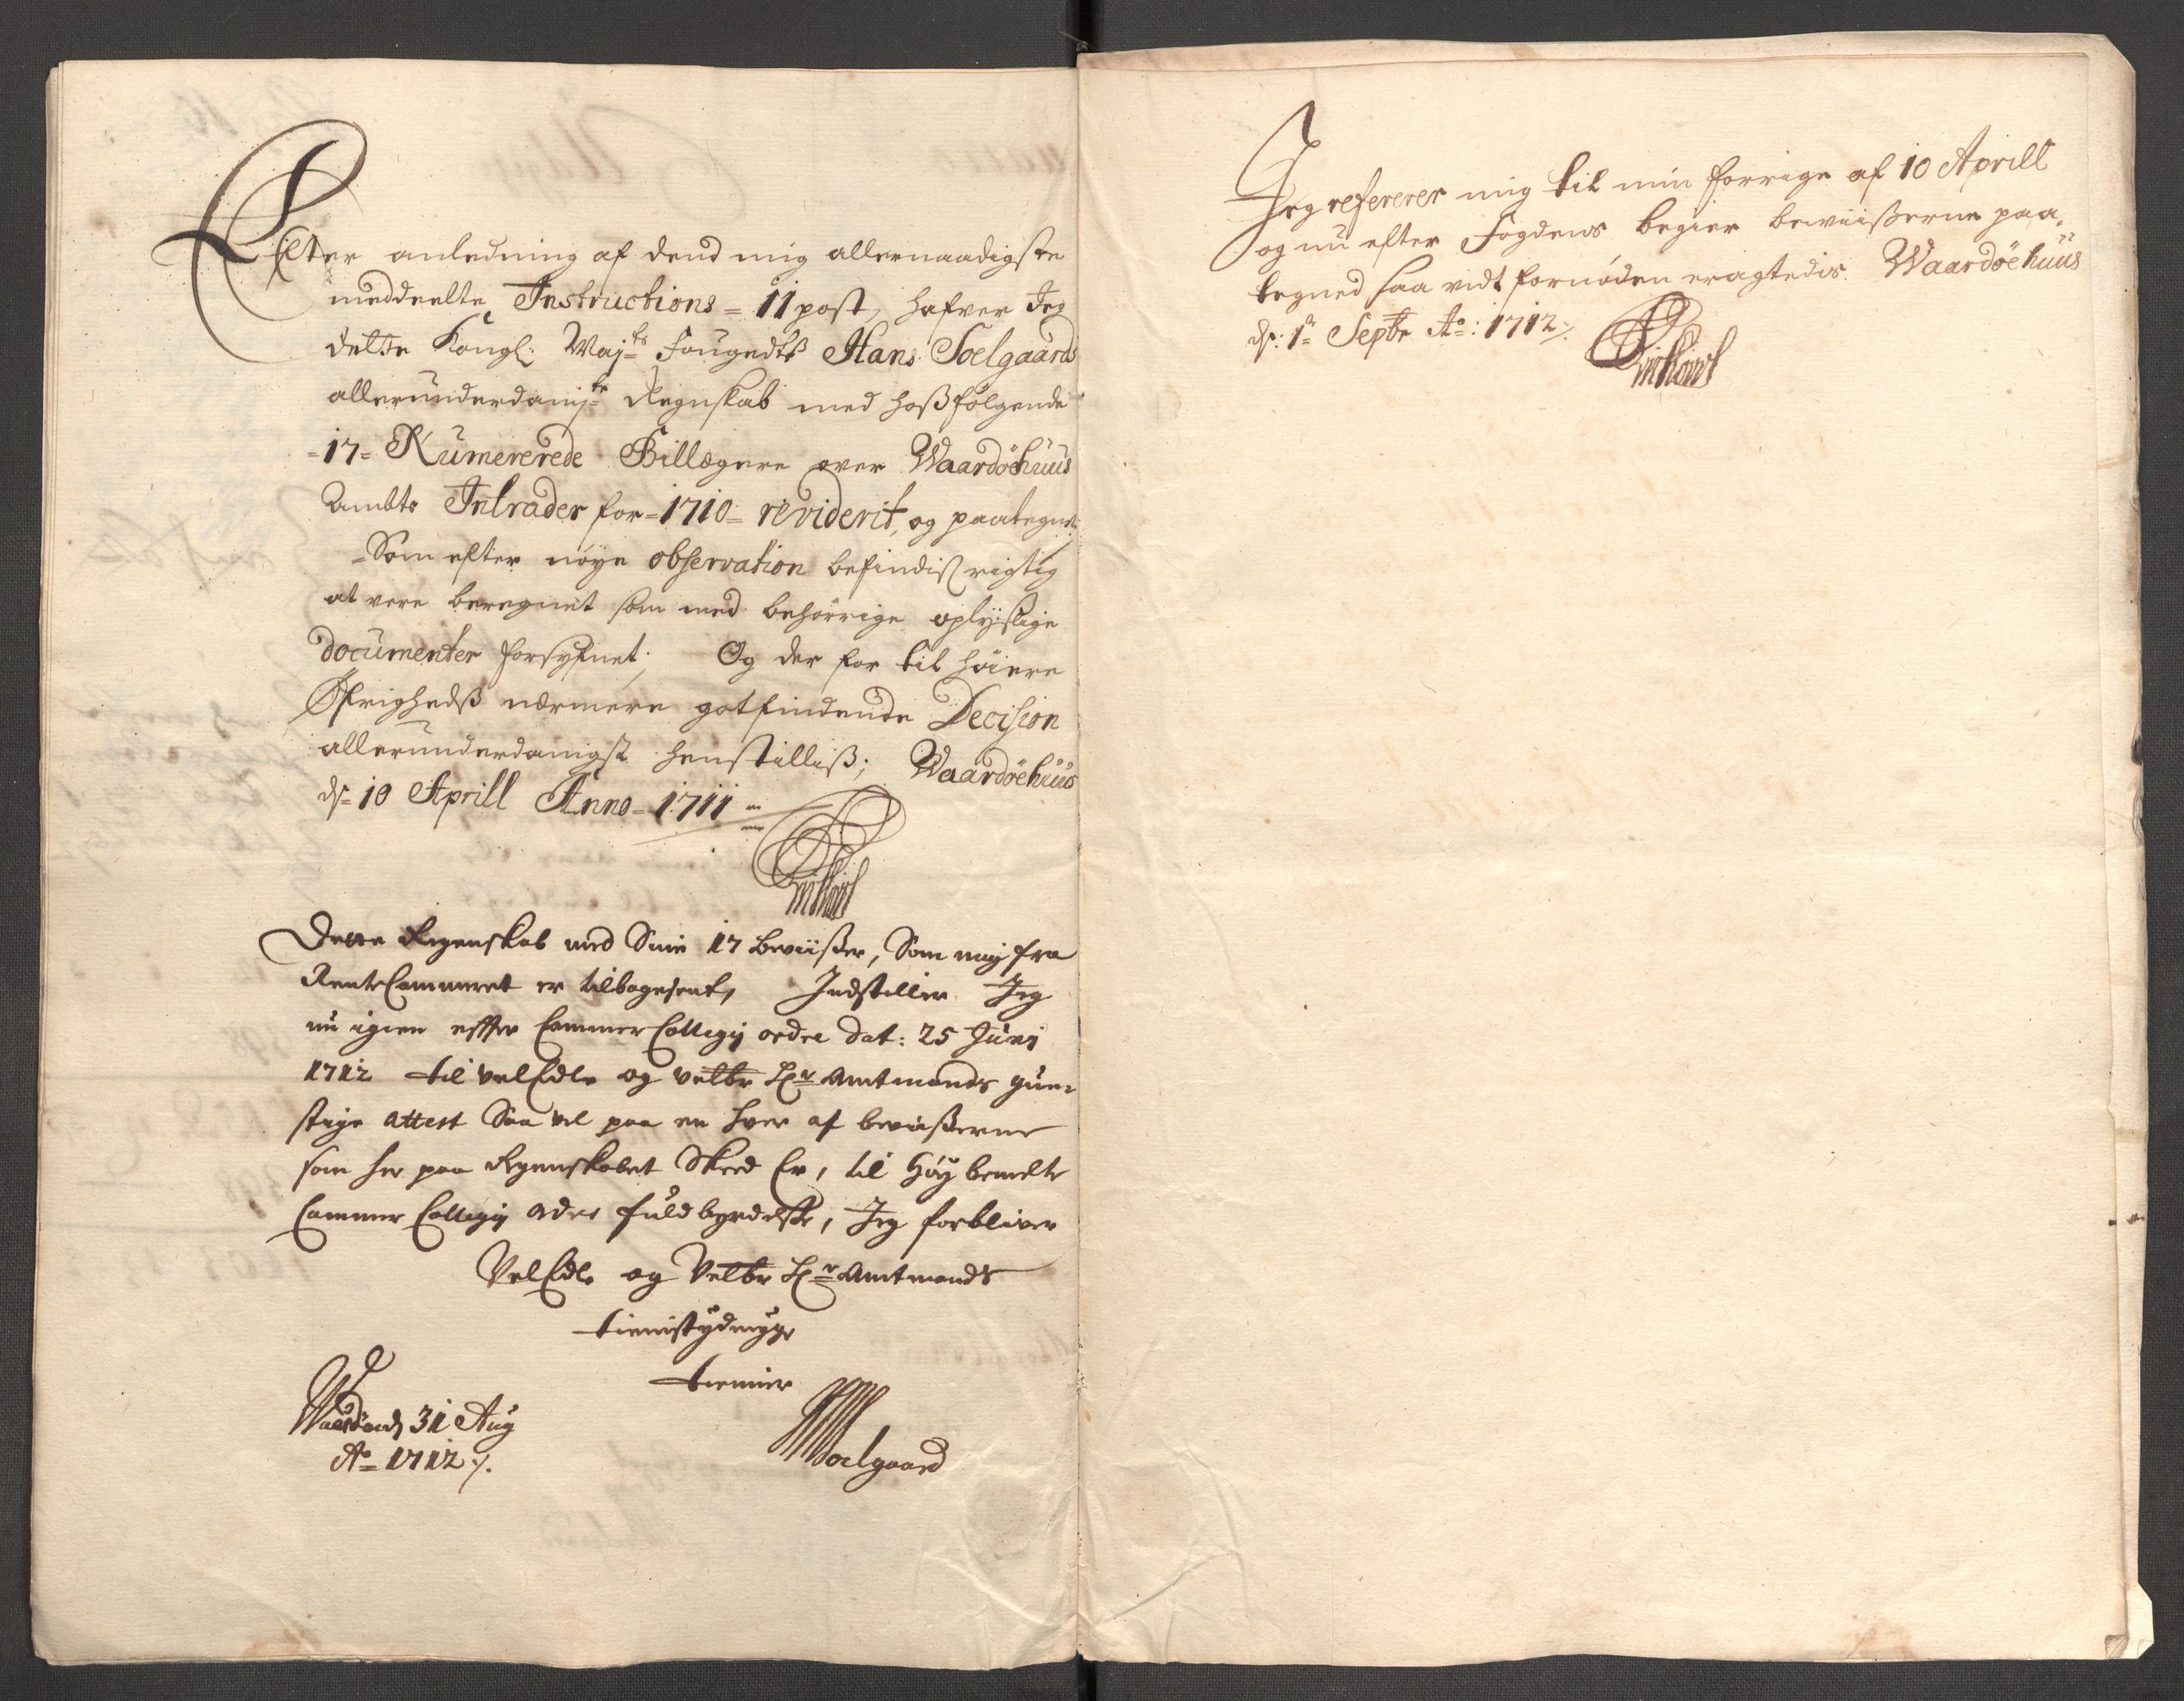 Efter anledning af dend mig allernaadigste
meddeelte Instructions = 11 post, hafver Jeg
dette Kongl: Maj:ts Fougedtß Hans Soelgaards
allerunderdanigste Regnskab med hoßfølgende
=17= Numererede Billægere over Waardöehuus
Ambts Intrader for =1710= reviderit, og paategnet:
=Som efter nøye observation befindiß rigtig
at vere beregnet som med behörrige oplyslige
documenter forsyfnet; Og der for til høiere
Øfrighedß nærmere gotfindende Decision
allerunderdanigst henstilliß; Waardöehuus
ds= 10 Aprill Anno = 1711 =
Dette Regenskab med Sine 17 beviißer, Som mig fra
RenteCammeret er tilbagesent, Indstiller Jeg
nu igien effter Cammer Collegij ordre Dat: 25 Junj
1712 til velEdle og velbr Hr Amtmands gun-
stige attest Saa vel paa en hver af beviißerne
som her paa Regenskabet Skeed Er, til høy bemelte
Cammer Collegij Ordres fuldbyrdelße, Jeg forbliver
VelEdle og Velbr Hr Amtmands
tienistydmyge
tienner
Waardöe ds 31 Aug
Ao= 1712 ./.
HSoelgaard
Jeg refererer mig til min forrige af 10 Aprill
og nu efter Fogdens begier beviißerne paa-
tegned saa vidt fornøden eragtedis. Waardöehuus
ds: 1te Septbr Ao: 1712 ./.